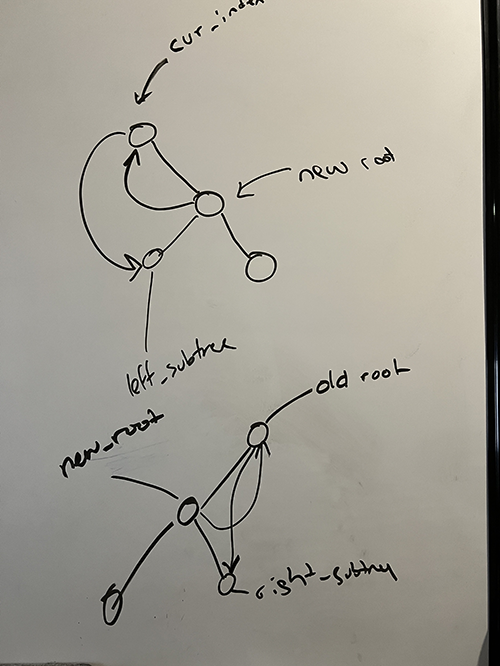 cur_index
new root
left_subtree
old root
new_root
right_subtree